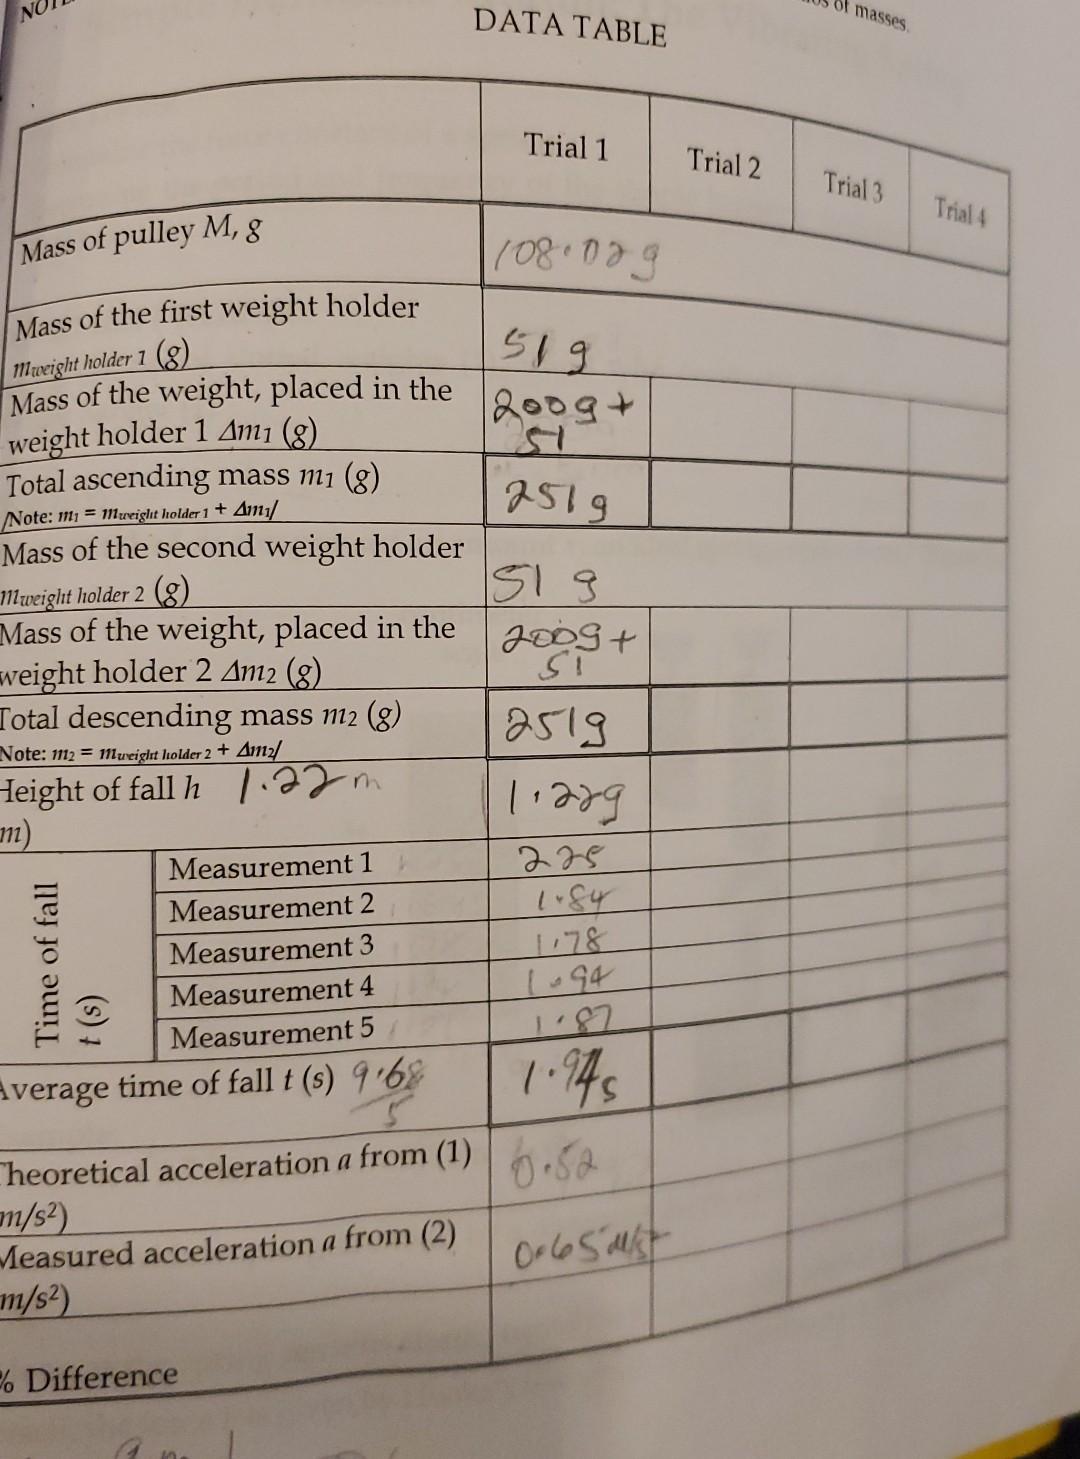 of masses.
DATA TABLE
Trial 1 Trial 2 Trial 3 Trial 4
Mass of pulley M, g 108.02g
Mass of the first weight holder
mweight holder 1 (g) 51 g
Mass of the weight, placed in the 200g +
weight holder 1 Δm1 (g) 51
Total ascending mass m1 (g) 251g
/Note: m1 = mweight holder 1 + Δm1/
Mass of the second weight holder
mweight holder 2 (g) 51 g
Mass of the weight, placed in the 200g +
weight holder 2 Δm2 (g) 51
Total descending mass m2 (g) 251g
Note: m2 = mweight holder 2 + Δm2/
Height of fall h 1.22 m 1.22g
m)
Time of fall
t (s)
Measurement 1 225
Measurement 2 1.84
Measurement 3 1.78
Measurement 4 1.94
Measurement 5 1.87
Average time of fall t (s) 9.68 1.94s
5
Theoretical acceleration a from (1) 0.52
m/s²)
Measured acceleration a from (2) 0.65 m/s²
m/s²)
% Difference